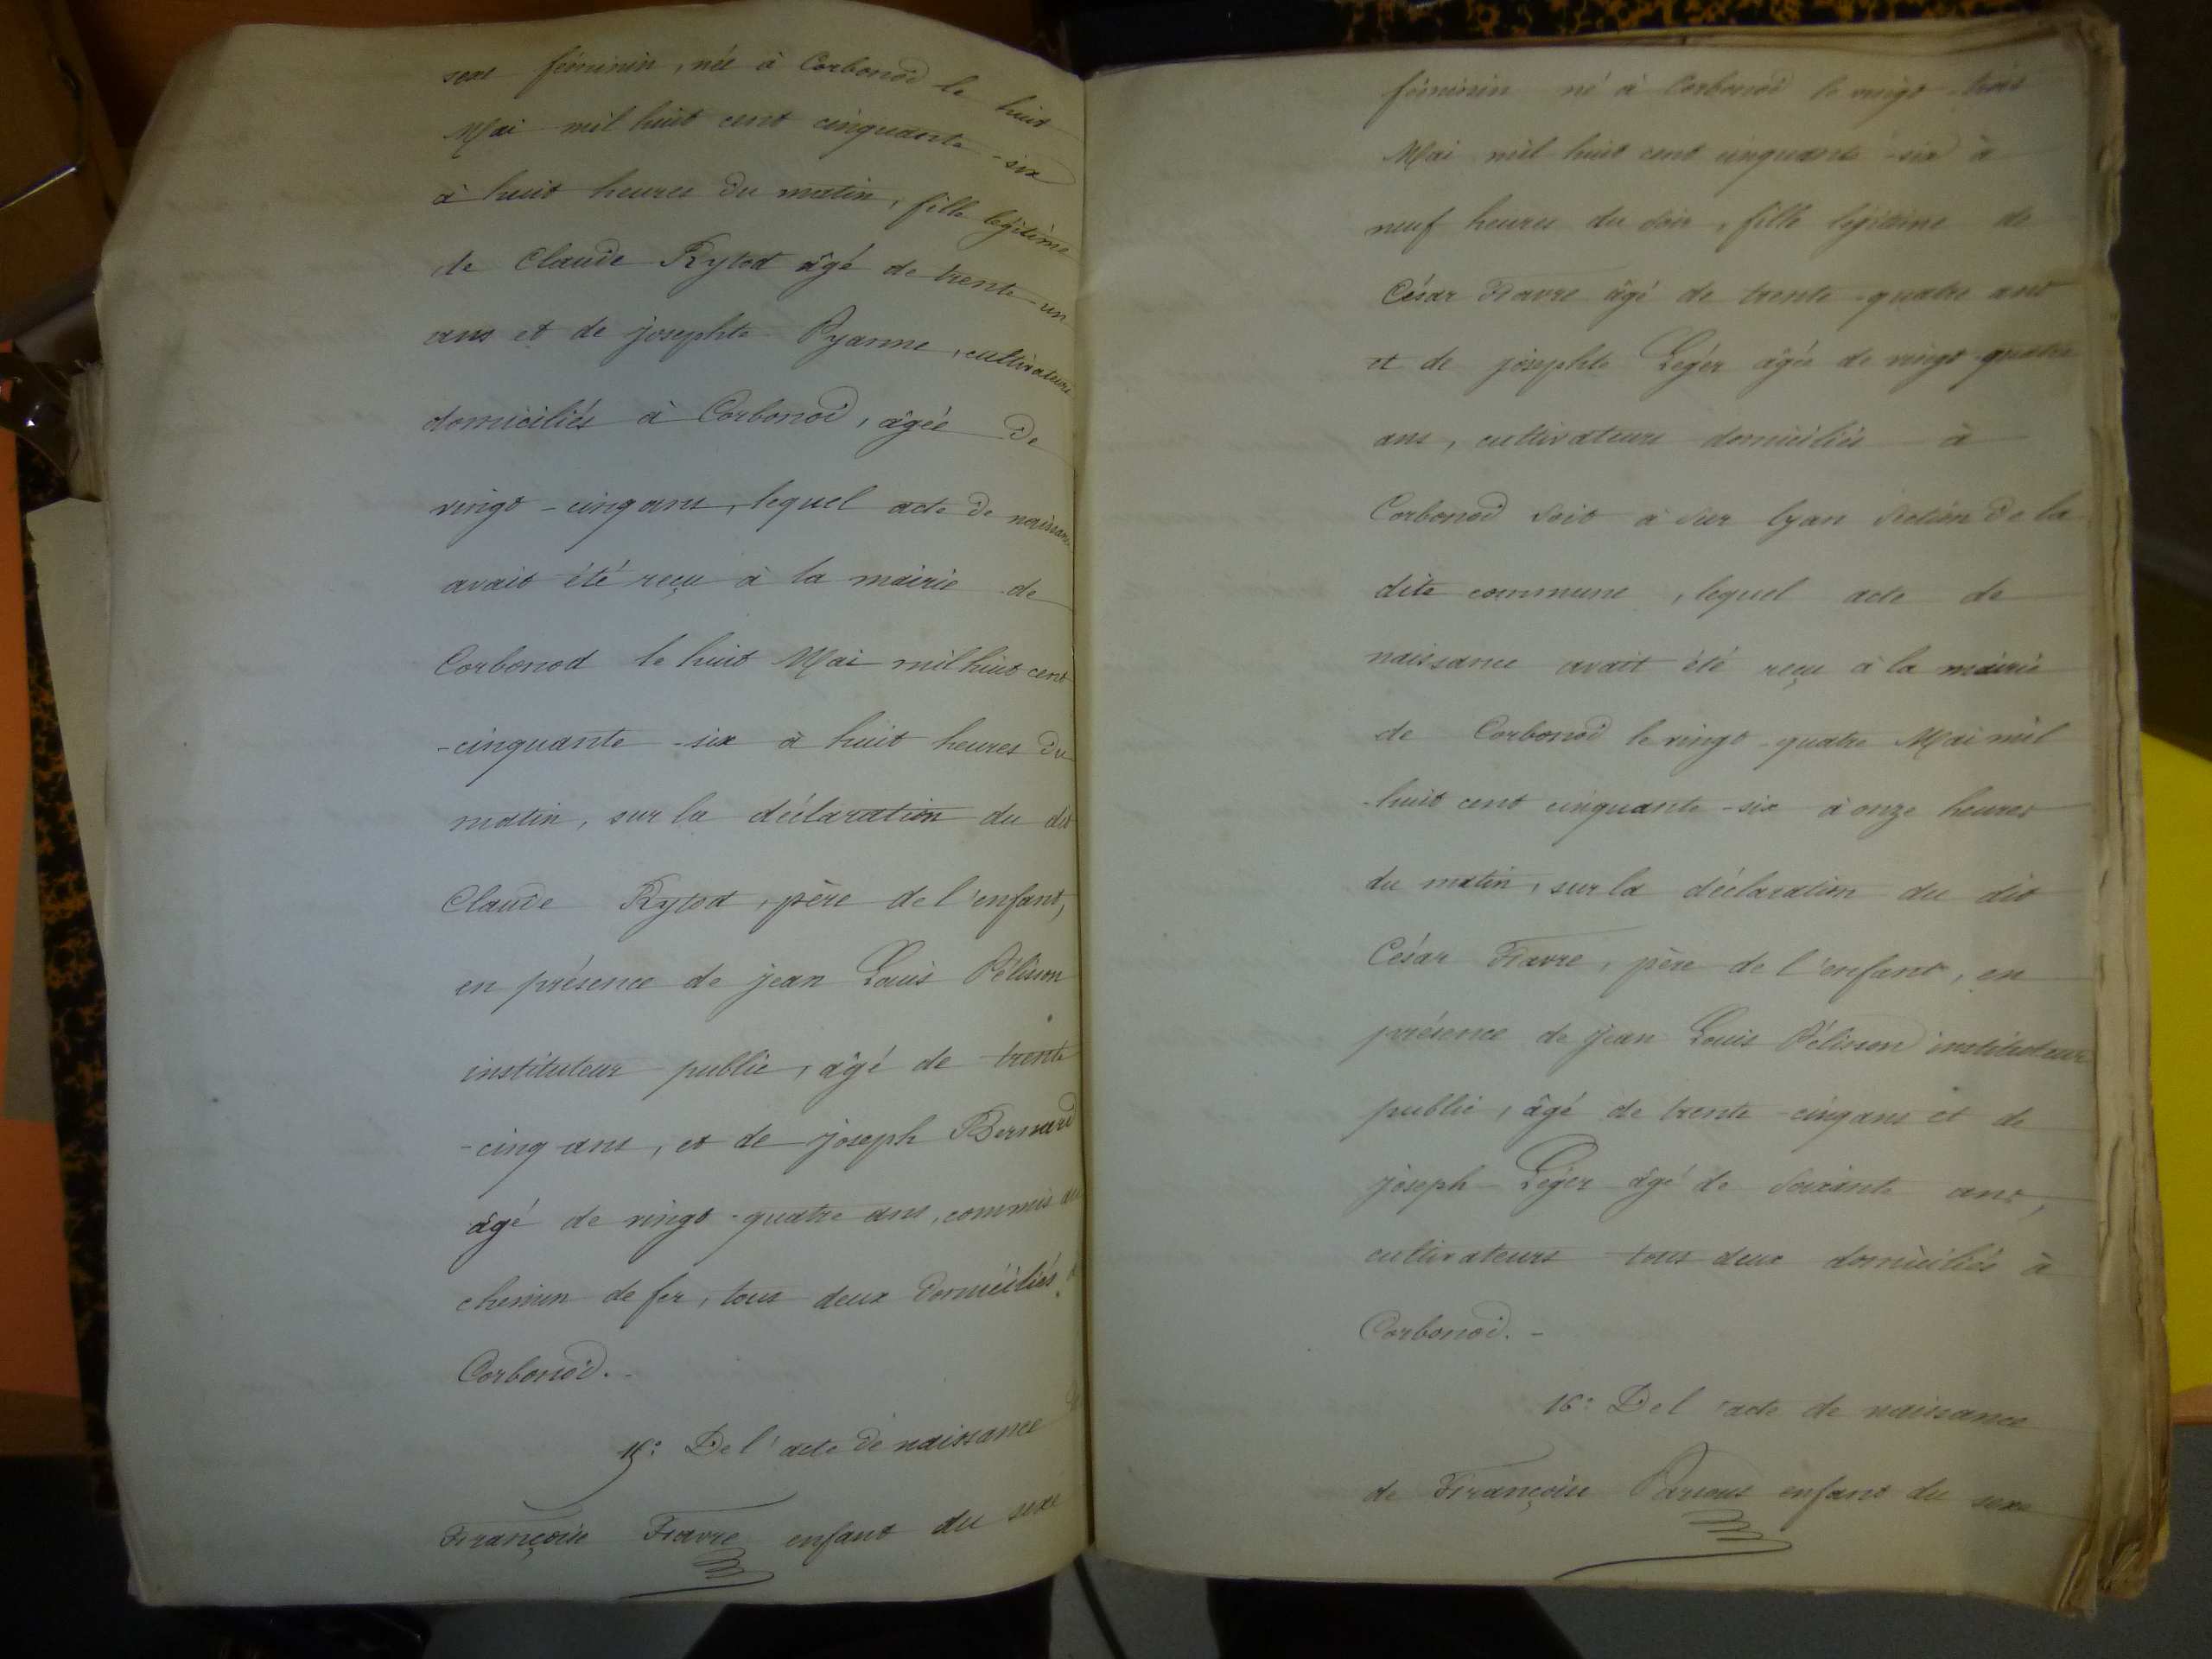 sexe féminin, née à Corbonod le huit
Mai mil huit cent cinquante-six
à huit heures du matin, fille légitime
de Claude Rytod âgé de trente-un
ans et de josephte Pyanne, cultivateurs
domiciliés à Corbonod, âgée de
vingt-cinq ans, lequel acte de naissance
avait été reçu à la mairie de
Corbonod le huit Mai mil huit cent
-cinquante-six à huit heures du
matin, sur la déclaration du dit
Claude Rytod, père de l'enfant,
en présence de jean Louis Pélisson
instituteur public, âgé de trente
-cinq ans, et de joseph Bernard
âgé de vingt-quatre ans, commis au
chemin de fer, tous deux domiciliés à
Corbonod.-
15° De l'acte de naissance de
Françoise Favre enfant du sexe
féminin né à Corbonod le vingt-trois
Mai mil huit cent cinquante-six à
neuf heures du soir, fille légitime de
César Favre âgé de trente-quatre ans
et de josephte Léger âgée de vingt-quatre
ans, cultivateurs domiciliés à
Corbonod soit à sur lyan section de la
dite commune, lequel acte de
naissance avait été reçu à la mairie
de Corbonod le vingt-quatre Mai mil
-huit cent cinquante-six à onze heures
du matin, sur la déclaration du dit
César Favre, père de l'enfant, en
présence de jean Louis Pélisson instituteur
public, âgé de trente-cinq ans et de
joseph Léger âgé de soixante ans,
cultivateurs tous deux domiciliés à
Corbonod.-
16° De l'acte de naissance
de Françoise enfant du sexe